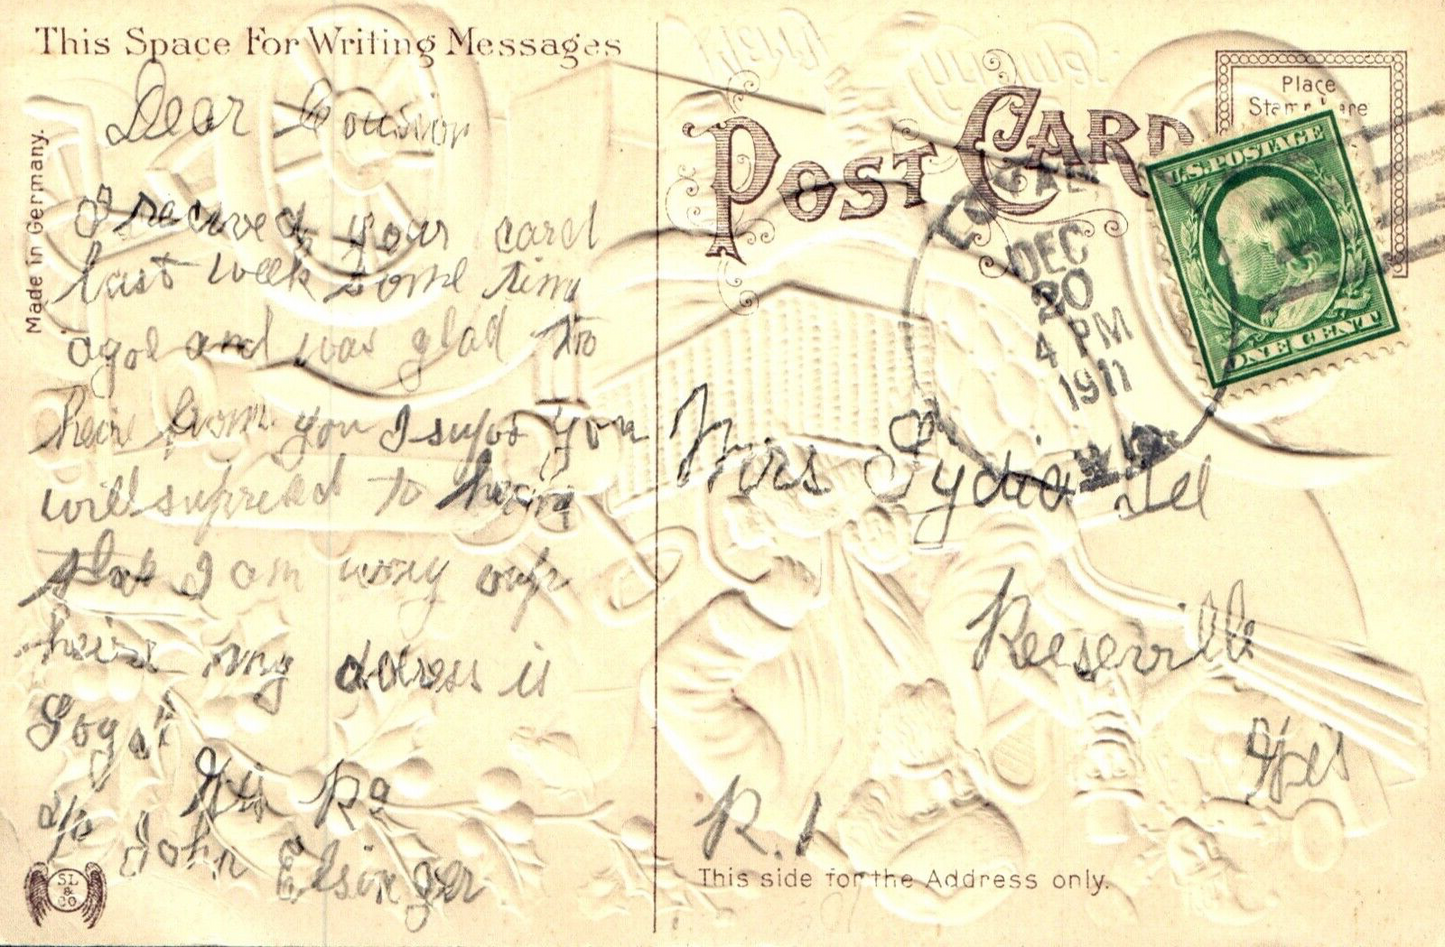 This Space For Writing Messages
Dear Cousion
I received your card
last week some time
agoe and was glad to
heire from you I supos you
will supriesd to hear
that I am way up
heire my adress is
Logal
Wis R2
c/o John Elsinger
Made in Germany.
SL
&
CO
POST CARD
Place
Stamp Here
U.S.POSTAGE
ONE CENT
DEC
20
4 PM
1911
WIS
Mrs Lydia Iel
Reeseville
Wis
R. 1
This side for the Address only.